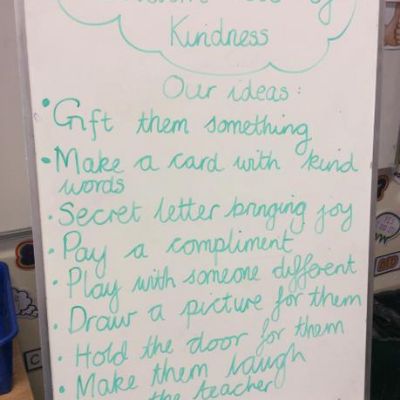 of
Kindness
Our ideas:
• Gift them something
• Make a card with kind
words
• Secret letter bringing joy
• Pay a compliment
• Play with someone different
• Draw a picture for them
• Hold the door for them
• Make them laugh
• the teacher